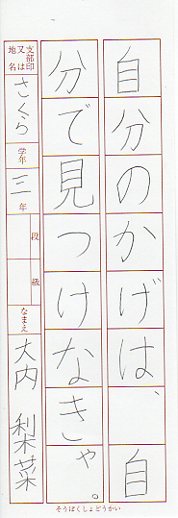 自分のかげは、自
分で見つけなきゃ。
支部印又は地名 さくら 学年 三年 段 級 なまえ 大内 梨菜
そうばくしょどうかい